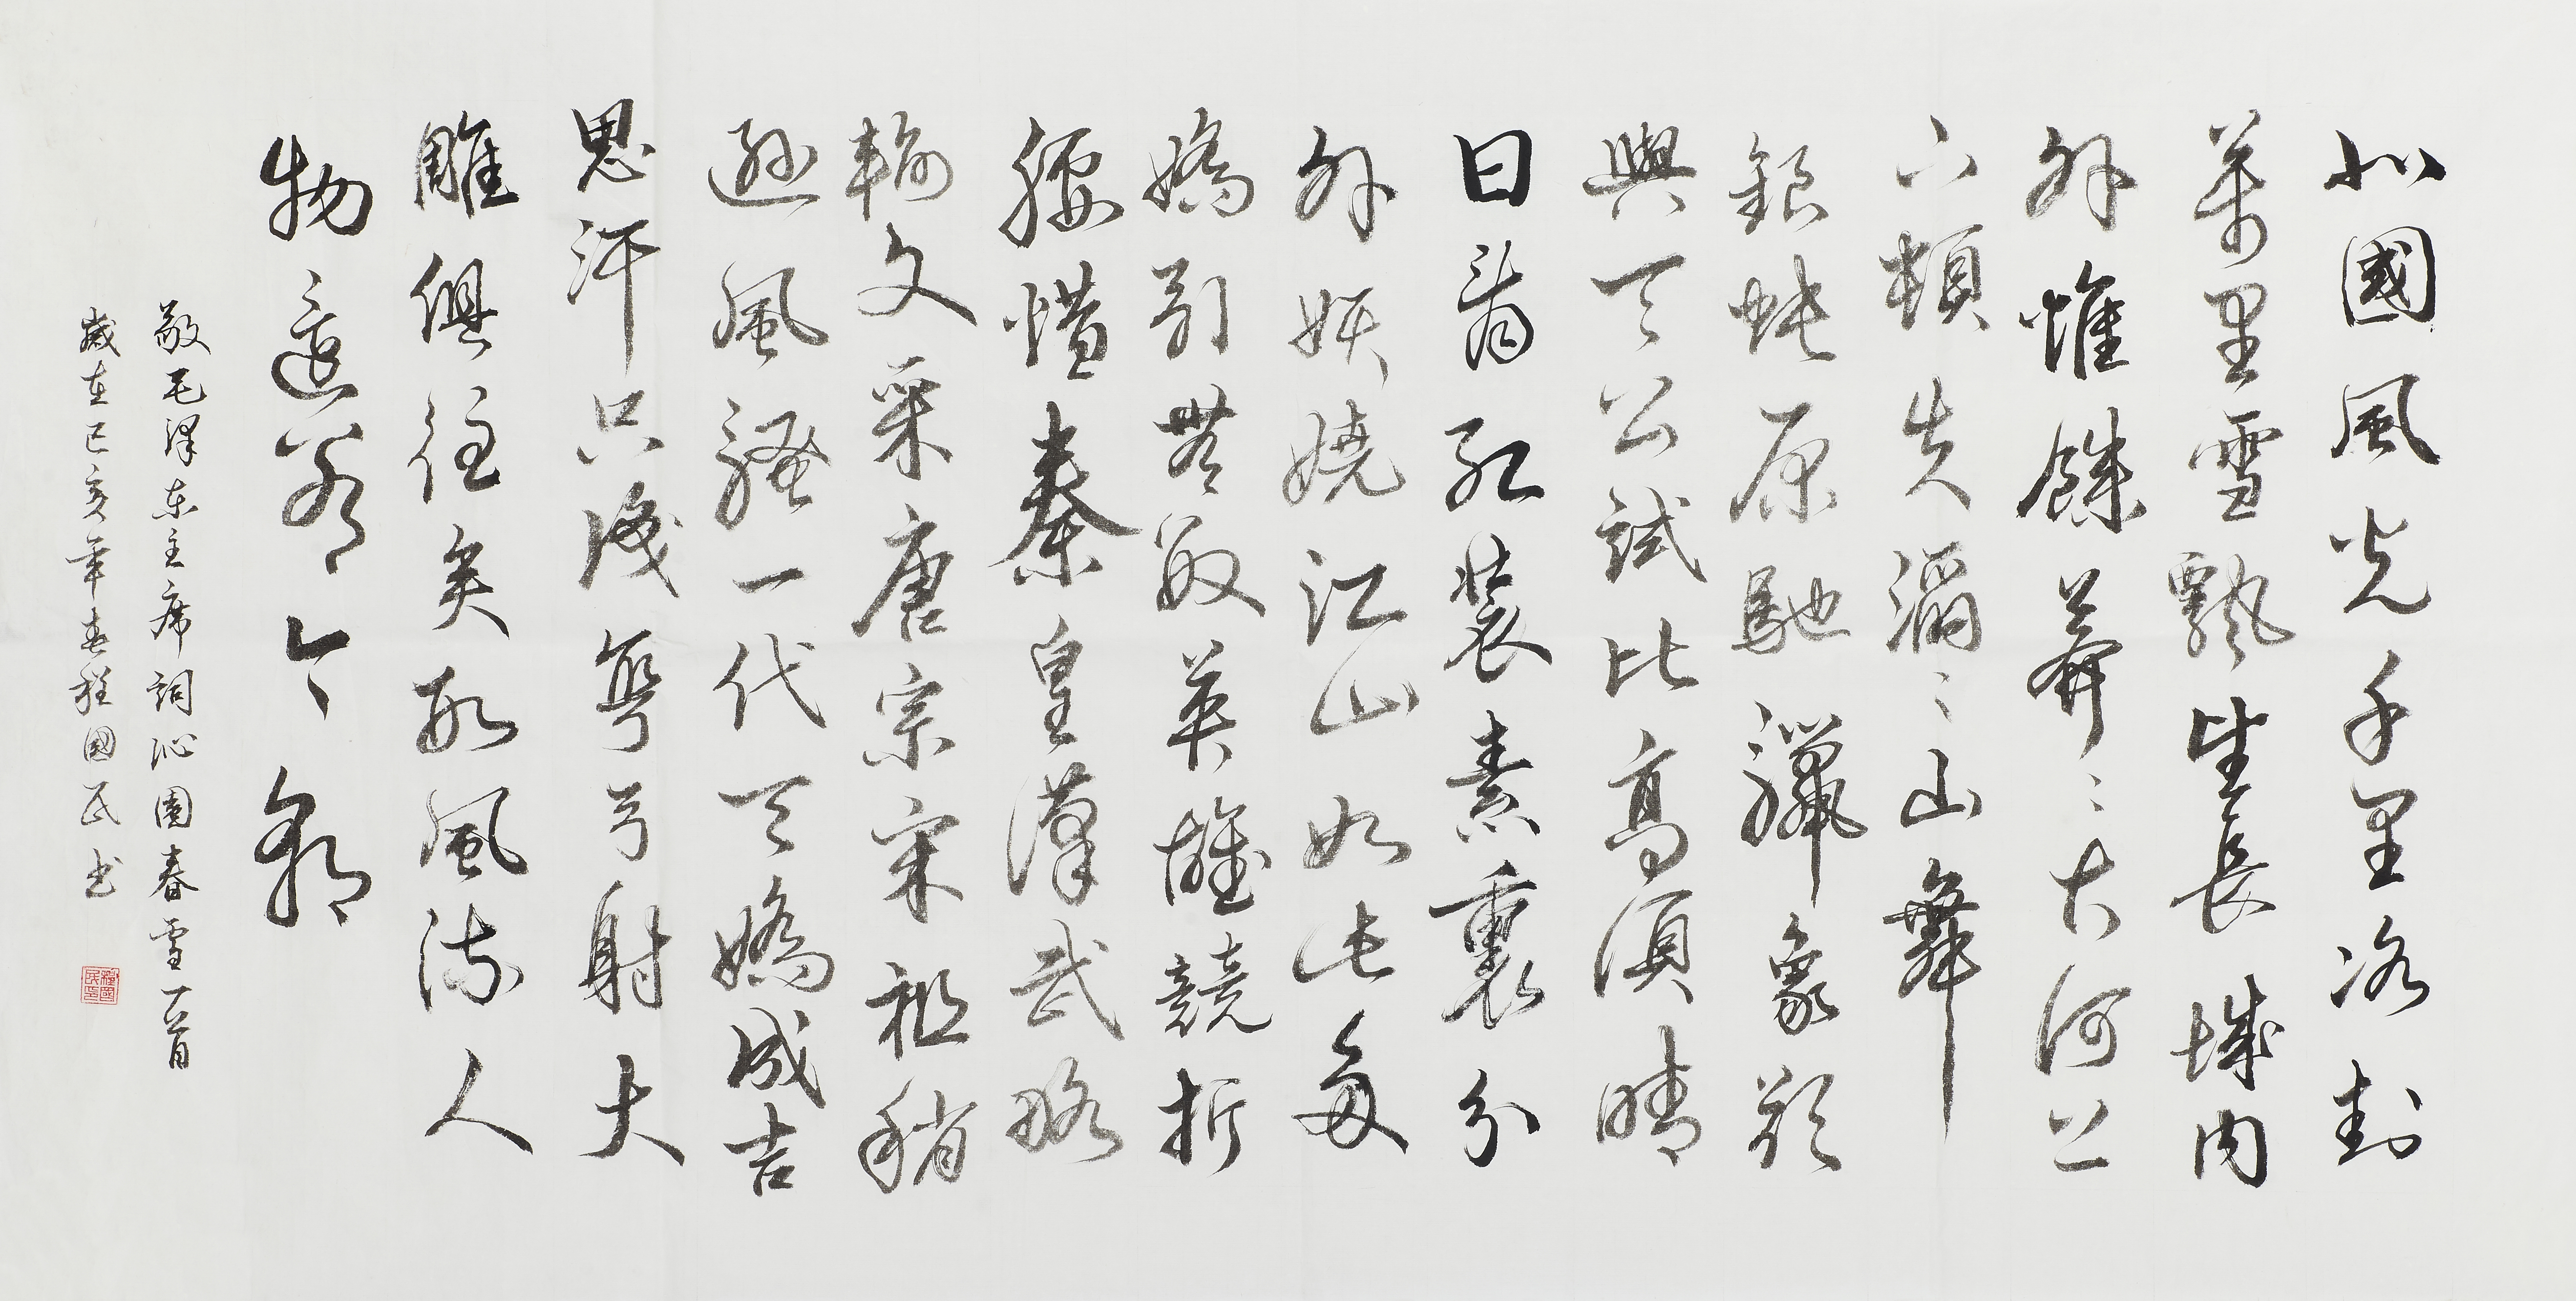 北國風光千里冰封
萬里雪飄望長城內
外惟餘莽〻大河上
下頓失滔〻山舞
銀蛇原馳臘象欲
與天公試比高須晴
日看紅裝素裹分
外妖嬈江山如此多
嬌引無數英雄競折
腰惜秦皇漢武略
輸文采唐宗宋祖稍
遜風騷一代天嬌成吉
思汗只識彎弓射大
雕俱往矣數風流人
物還看今朝
敬毛澤東主席詞沁園春雪一首
歲在己亥年春程國民书
程國民印